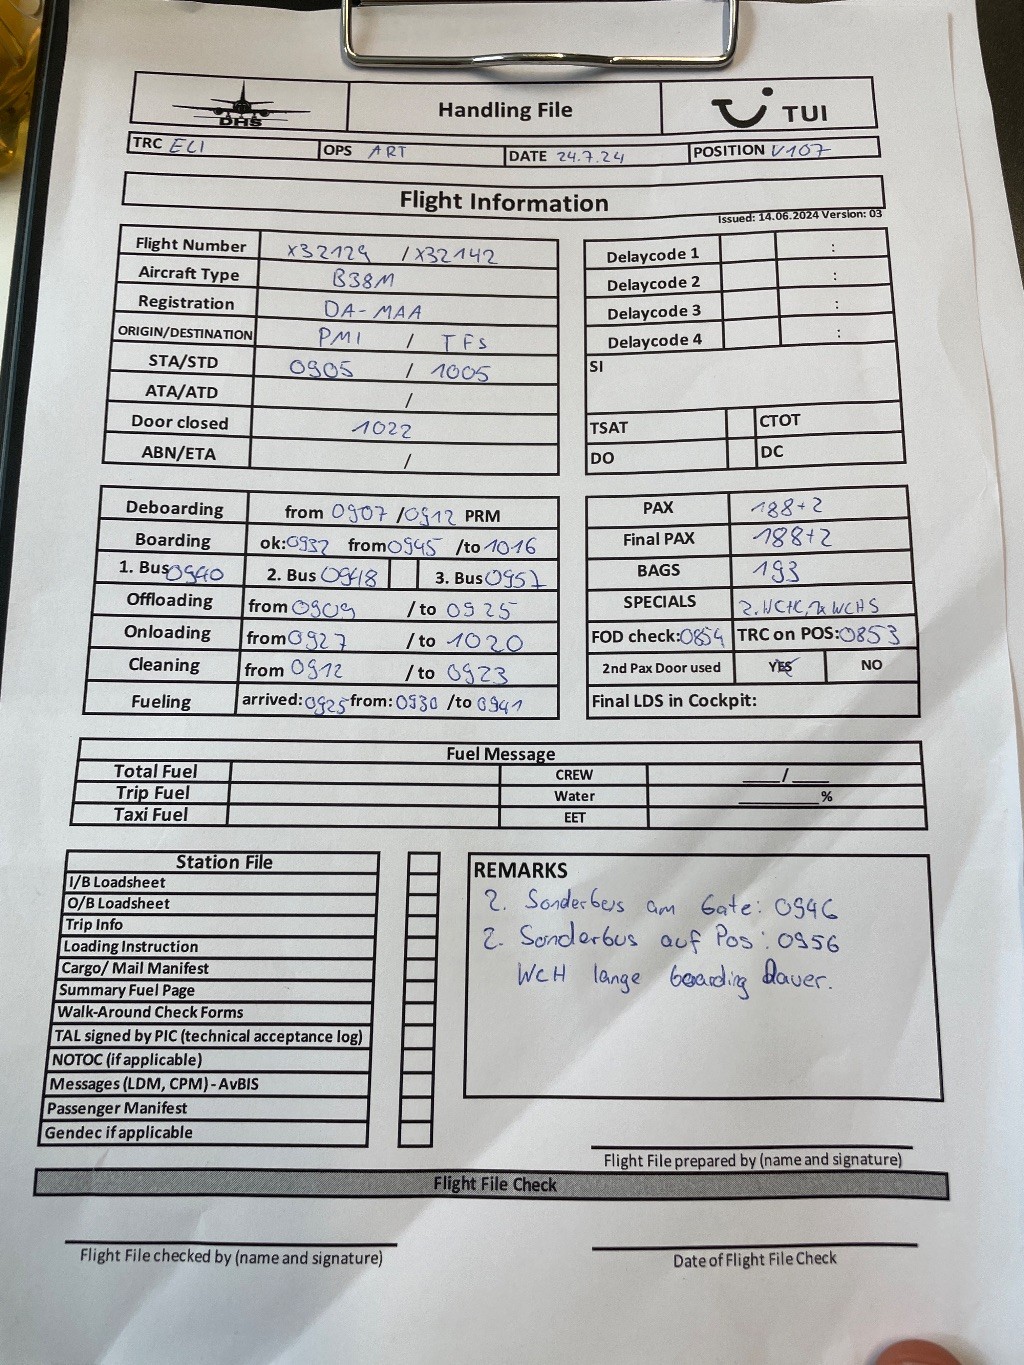 DHS
Handling File
TUI
TRC ELI OPS ART DATE 24.7.24 POSITION V107
Flight Information
Issued: 14.06.2024 Version: 03
Flight Number X32129 / X32142
Aircraft Type B38M
Registration DA-MAA
ORIGIN/DESTINATION PMI / TFS
STA/STD 0905 / 1005
ATA/ATD /
Door closed 1022
ABN/ETA /
Delaycode 1 :
Delaycode 2 :
Delaycode 3 :
Delaycode 4 :
SI
TSAT CTOT
DO DC
Deboarding from 0907 /0912 PRM
Boarding ok:0932 from0945 /to 1016
1. Bus 0940 2. Bus 0948 3. Bus 0951
Offloading from 0909 / to 0925
Onloading from 0927 / to 1020
Cleaning from 0912 / to 0923
Fueling arrived:0925 from: 0930 /to 0941
PAX 188+2
Final PAX 188+2
BAGS 193
SPECIALS WCHS
FOD check:0854 TRC on POS:0853
2nd Pax Door used YES NO
Final LDS in Cockpit:
Fuel Message
Total Fuel CREW ____/____
Trip Fuel Water ________%
Taxi Fuel EET
Station File
I/B Loadsheet
O/B Loadsheet
Trip Info
Loading Instruction
Cargo/ Mail Manifest
Summary Fuel Page
Walk-Around Check Forms
TAL signed by PIC (technical acceptance log)
NOTOC (if applicable)
Messages (LDM, CPM) - AvBIS
Passenger Manifest
Gendec if applicable
REMARKS
2. Sonderbus am Gate: 0946
2. Sonderbus auf Pos: 0956
WCH lange boarding Dauer.
Flight File prepared by (name and signature)
Flight File Check
Flight File checked by (name and signature)
Date of Flight File Check